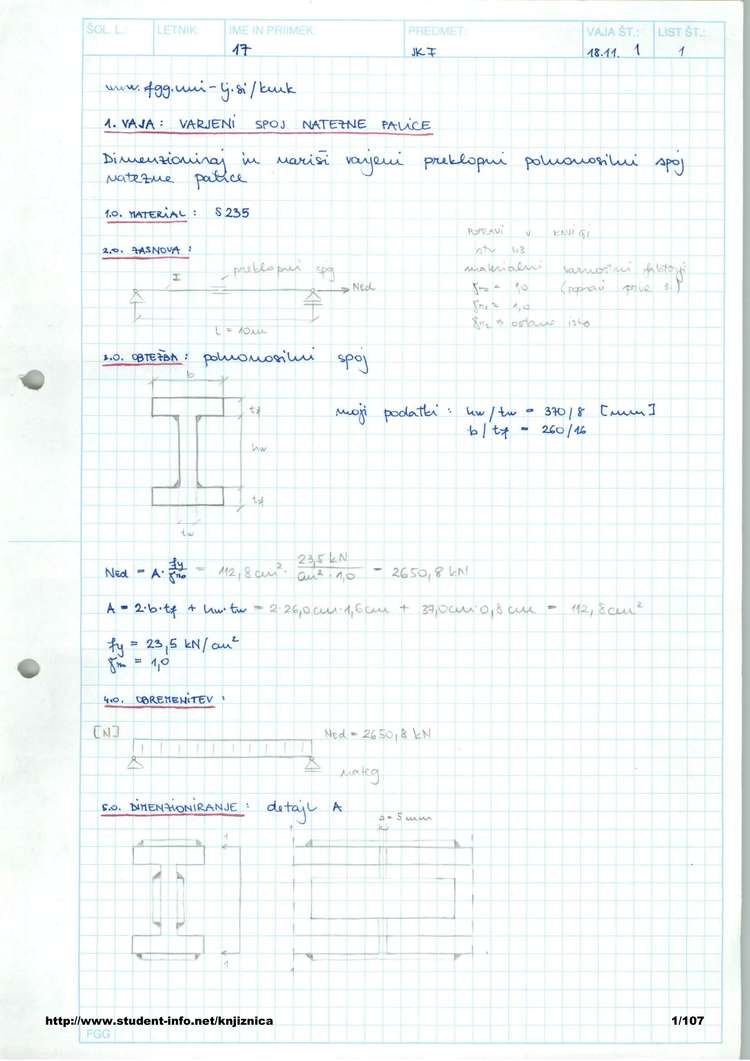 ŠOL. L.: LETNIK: IME IN PRIIMEK: PREDMET: VAJA ŠT.: LIST ŠT.:
17 JK I 18.11. 1 1
www.fgg.uni-lj.si/kmk
1. VAJA: VARJENI SPOJ NATEZNE PALICE
Dimenzioniraj in nariši varjeni preklopni polnonosilni spoj
natezne palice
1.0. MATERIAL: S 235
POPRAVI V KNJIGI
str 43
2.0. ZASNOVA:
materialni varnostni faktorji
I preklopni spoj
γm0 = 1,0 (popravi prve 2.)
NEd
γm1 = 1,0
γm2 = ostane isto
L = 10m
3.0. OBTEŽBA: polnonosilni spoj
b
tf
moji podatki: hw/tw = 370/8 [mm]
b/tf = 260/16
hw
tf
tw
NEd = A · fy/γm0 = 112,8cm² · 23,5 kN/cm² · 1,0 = 2650,8 kN
A = 2·b·tf + hw·tw = 2·26,0cm·1,6cm + 37,0cm·0,8cm = 112,8cm²
fy = 23,5 kN/cm²
γm = 1,0
4.0. OBREMENITEV:
[N] NEd = 2650,8 kN
nateg
5.0. DIMENZIONIRANJE: detajl A
Δ = 5mm
1 1
1 1
http://www.student-info.net/knjiznica 1/107
FGG